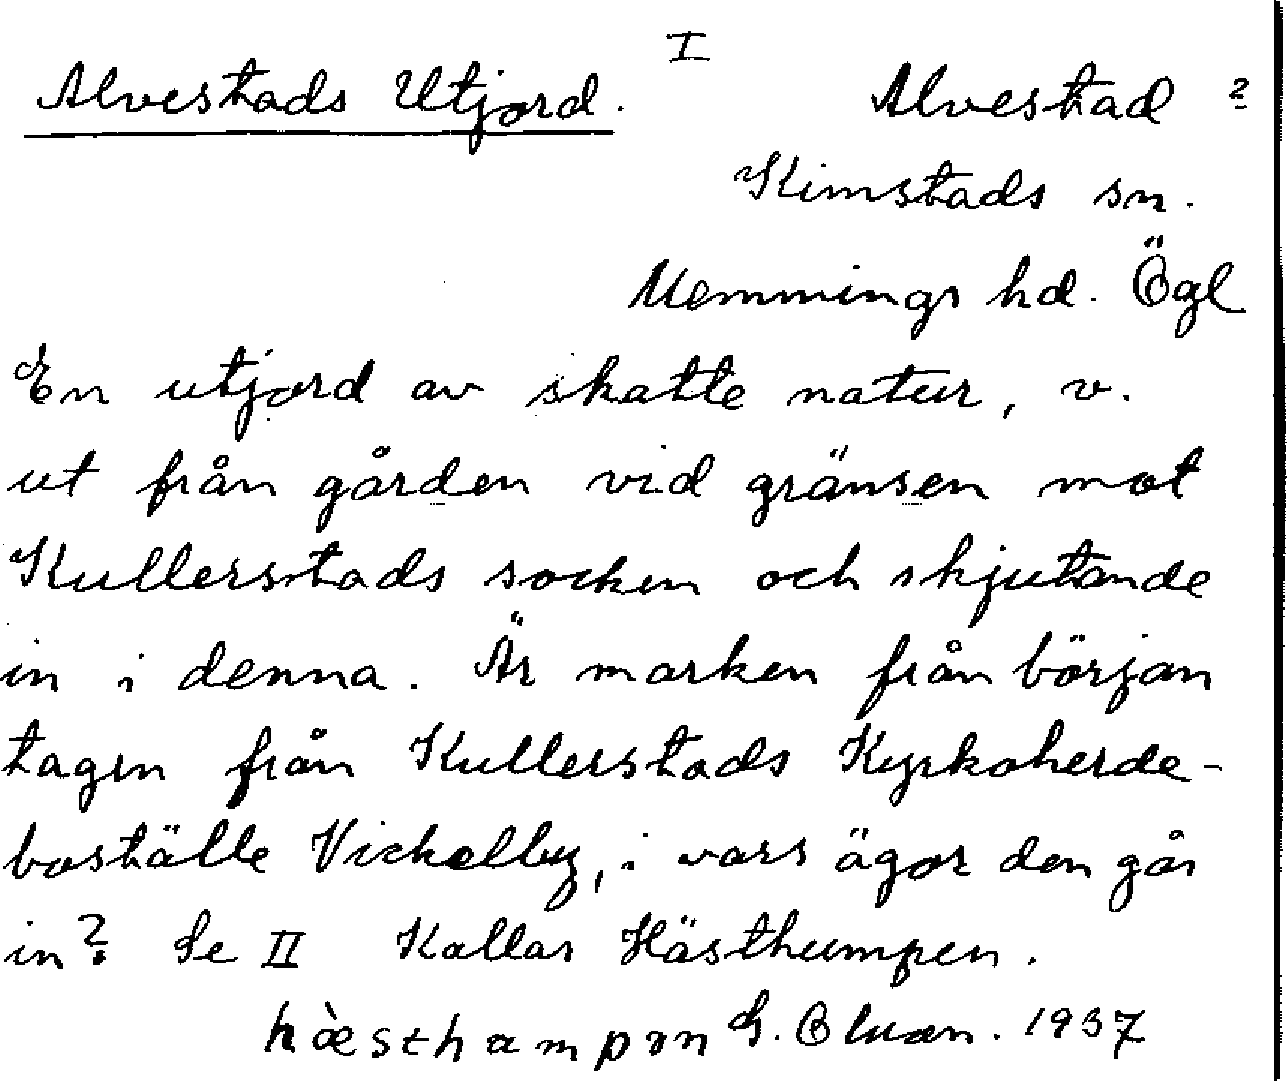 I
Alvestads Utjord. Alvestad 2
Kimstads sn.
Memmings hd. Ögl
En utjord av skatte natur, v.
ut från gården vid gränsen mot
Kullerstads socken och skjutande
in i denna. Är marken från början
tagen från Kullerstads Kyrkoherde-
boställe Vickelby, i vars ägor den går
in? Se II Kallas Hästhumpen.
hàesthampən G. 1937